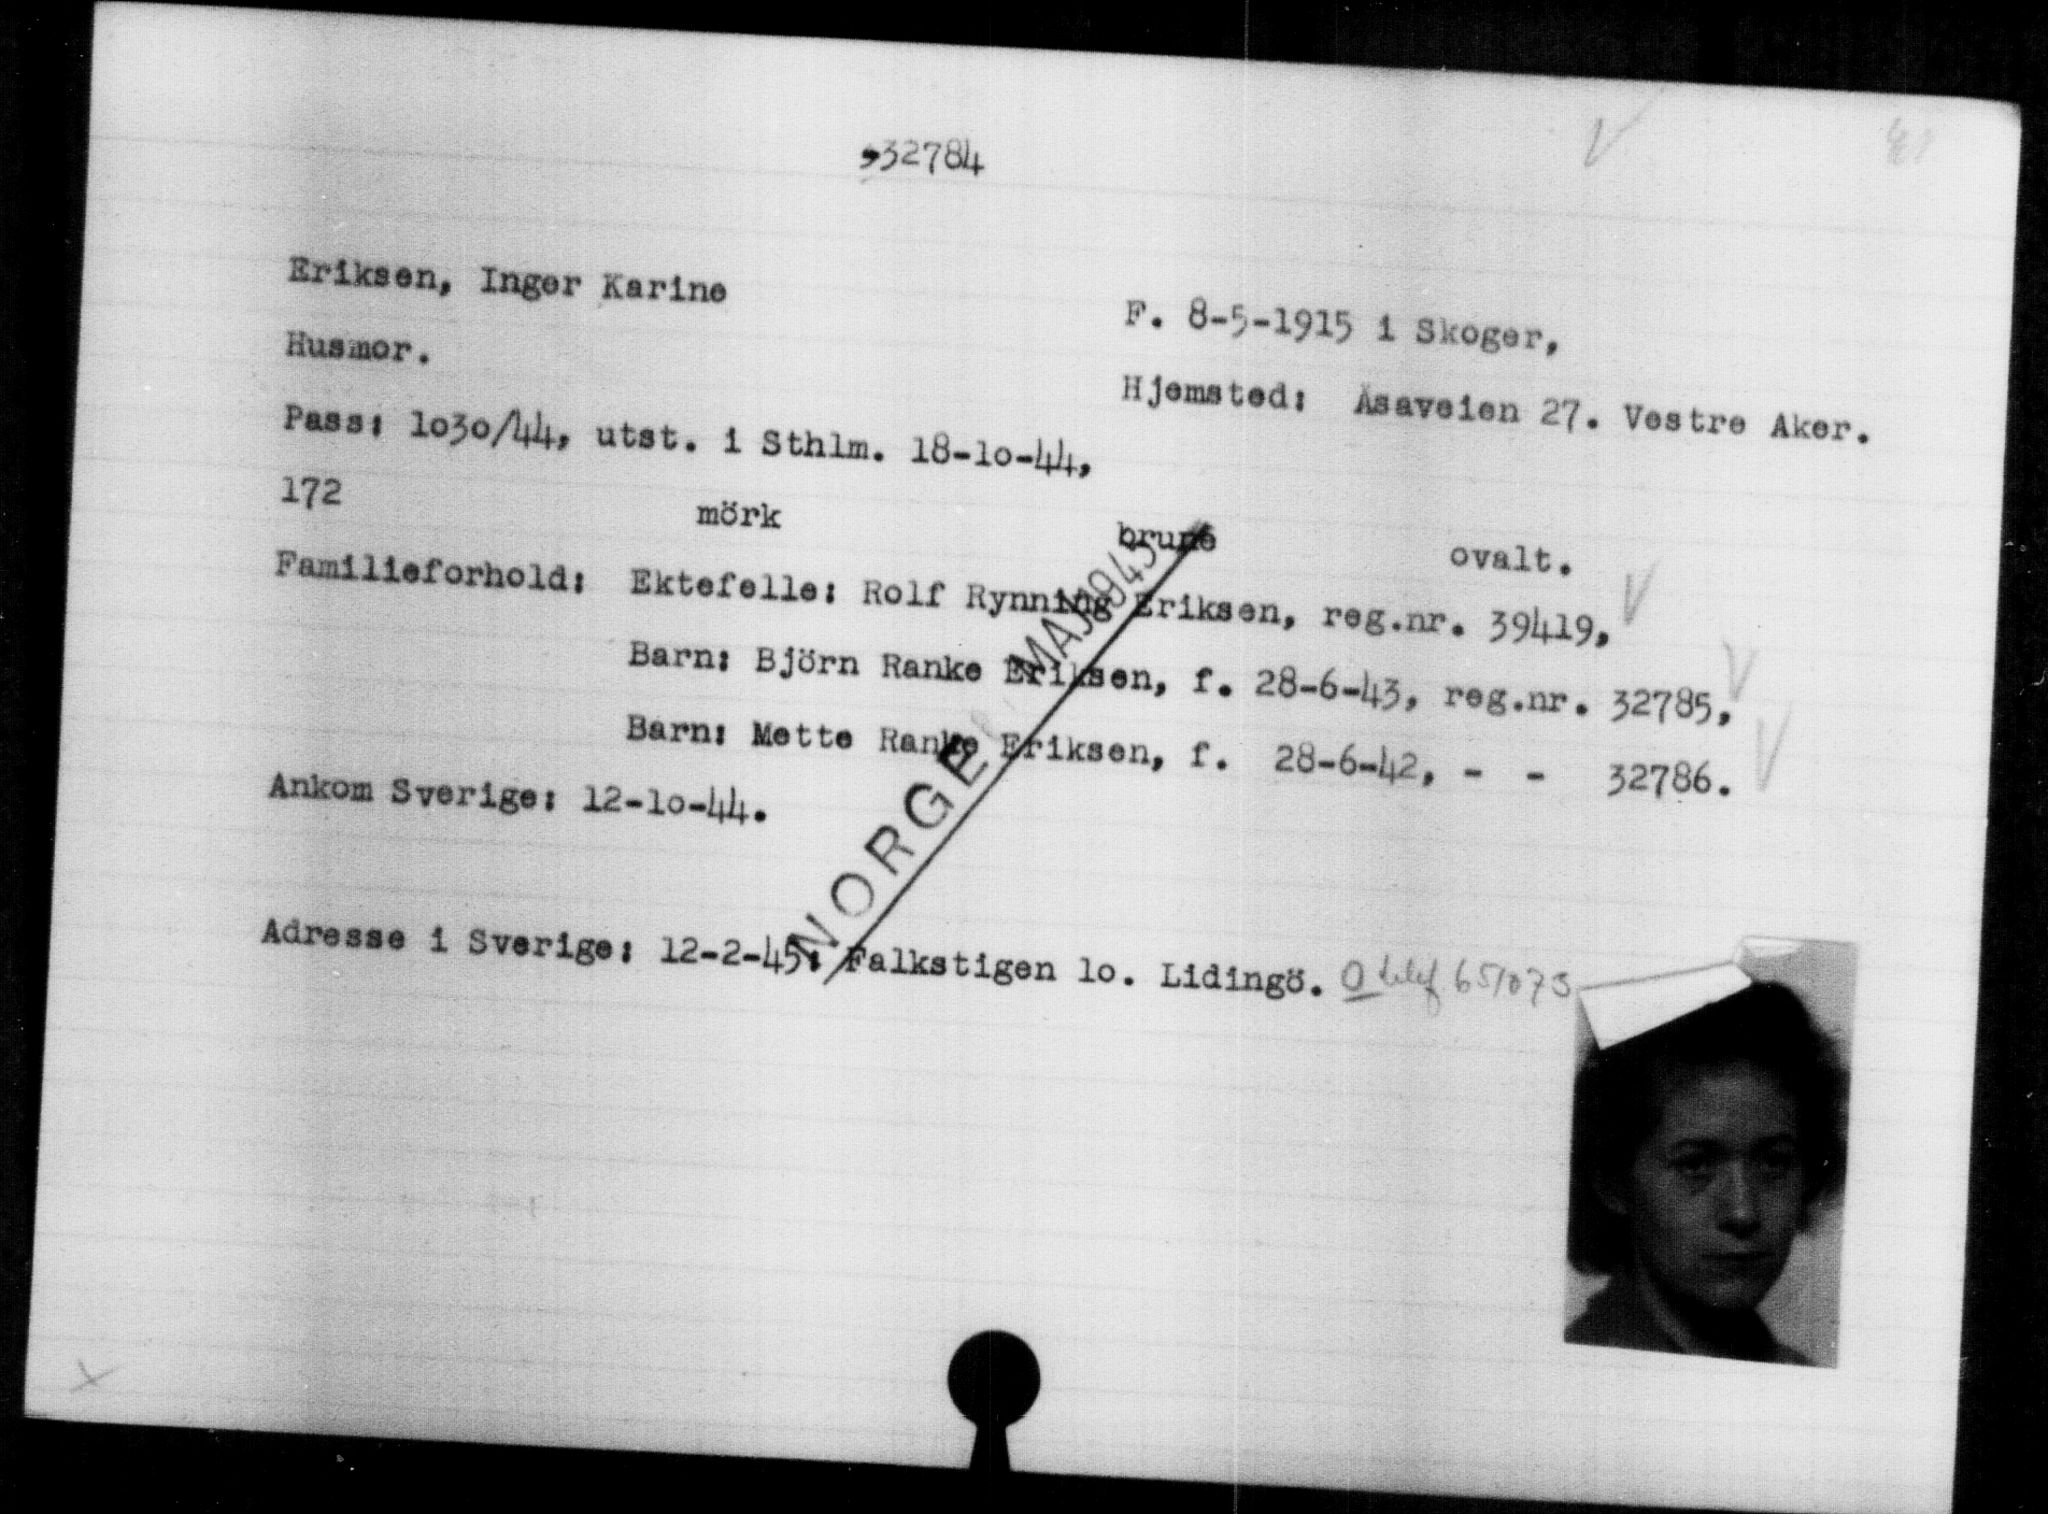 32784
Eriksen, Inger Karine
F. 8-5-1915 i Skoger,
Husmor.
Hjemsted: Åsaveien 27. Vestre Aker.
Pass: 1o3o/44, utst. i Sthlm. 18-1o-44,
172 mörk brune ovalt.
Familieforhold: Ektefelle: Rolf Rynning Eriksen, reg.nr. 39419,
Barn: Björn Ranke Eriksen, f. 28-6-43, reg.nr. 32785,
Barn: Mette Ranke Eriksen, f. 28-6-42, - - 32786.
Ankom Sverige: 12-1o-44.
NORGE MAJ 1945
Adresse i Sverige: 12-2-45: Falkstigen 1o. Lidingö. telef 651073